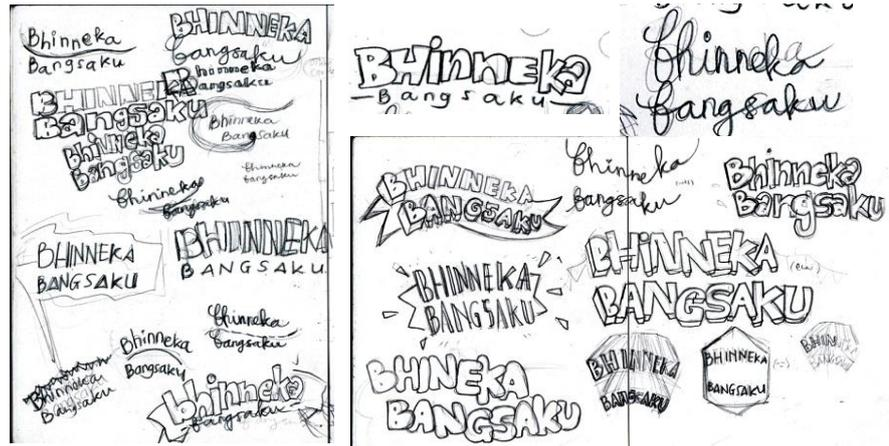 Bhinneka
Bangsaku
BHINNEKA
bangsaku
Bhinneka
Bangsaku
BHINNEKA
Bangsaku
Bhinneka
Bangsaku
Bhinneka
Bangsaku
bhinneka
bangsaku
bhinneka
Bangsaku
BHINNEKA
BANGSAKU
BHINNEKA
BANGSAKU
Bhinneka
bangsaku
Bhinneka
Bangsaku
Bhinneka
Bangsaku
bhinneka
bangsaku
BHinneka
Bangsaku
bhinneka
bangsaku
BHINNEKA
BANGSAKU
bhinneka
bangsaku
Bhinneka
Bangsaku
BHINNEKA
BANGSAKU
BHiNNEKA
BANGSAKU
BHINEKA
BANGSAKU
BHINNEKA
BANGSAKU
BHINNEKA
BANGSAKU
BHINNEKA
BANGSAKU